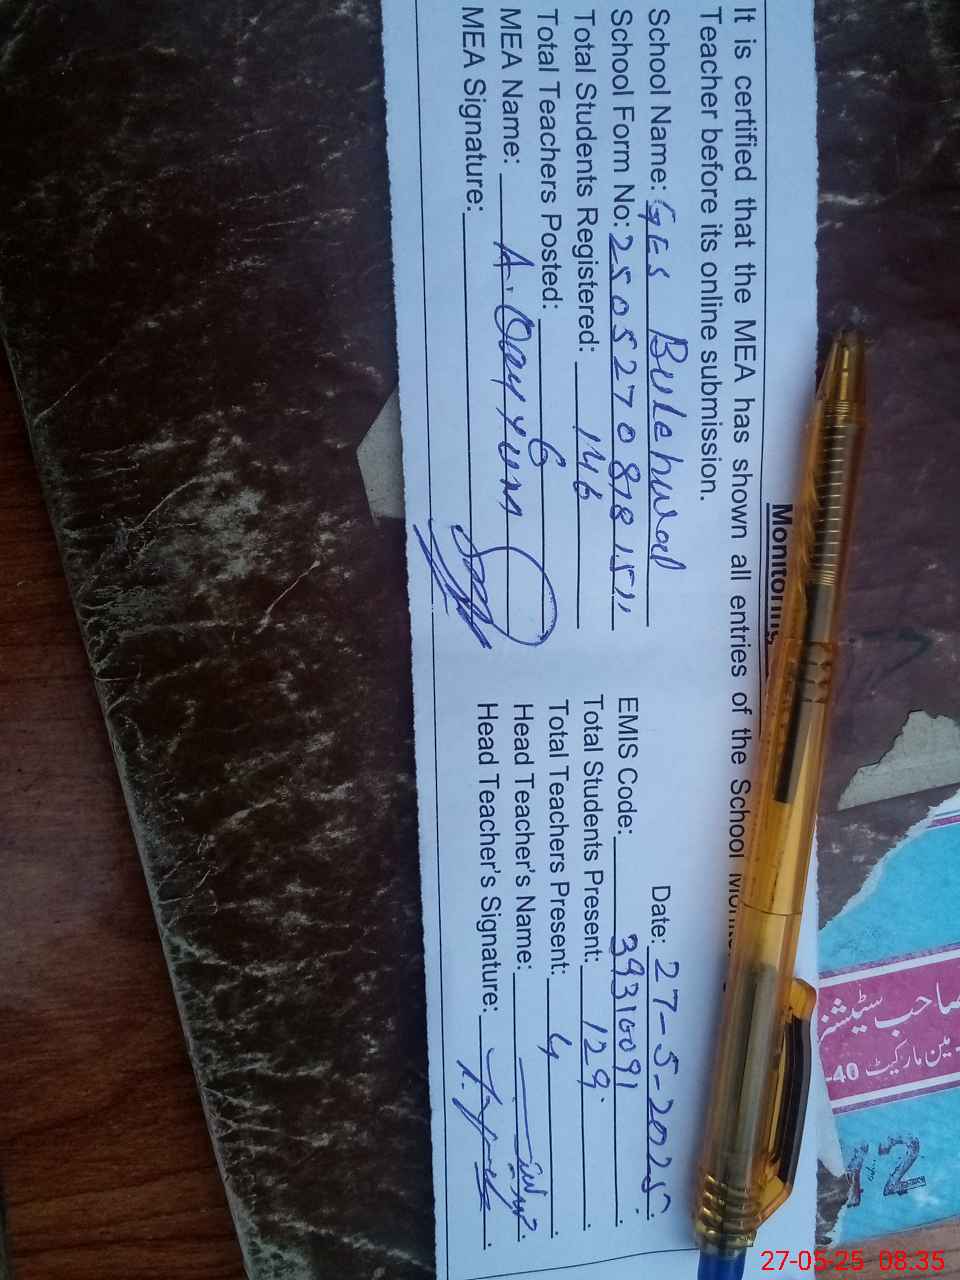 Monitoring
It is certified that the MEA has shown all entries of the School
Teacher before its online submission.
Date: 27-5-2025
School Name: GES Bulehwal
EMIS Code: 39310091
School Form No: 250527081815
Total Students Registered: 146
Total Students Present: 129
Total Teachers Posted: 6
Total Teachers Present: 4
MEA Name: A. Qayyum
Head Teacher's Name:
MEA Signature:
Head Teacher's Signature:
صاحب سٹیشنرز
مین مارکیٹ 40-
27-05-25 08:35